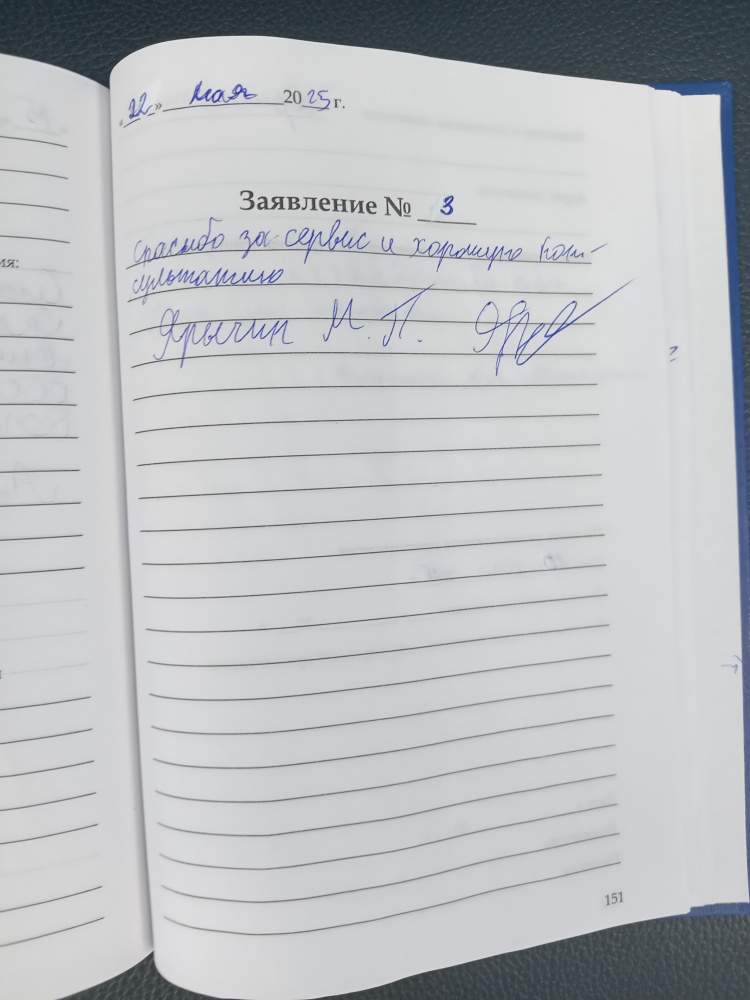 «22» мая 2025 г.
Заявление № 3
Спасибо за сервис и хорошую кон-
сультацию
Ярычин М. П.
151
ия: